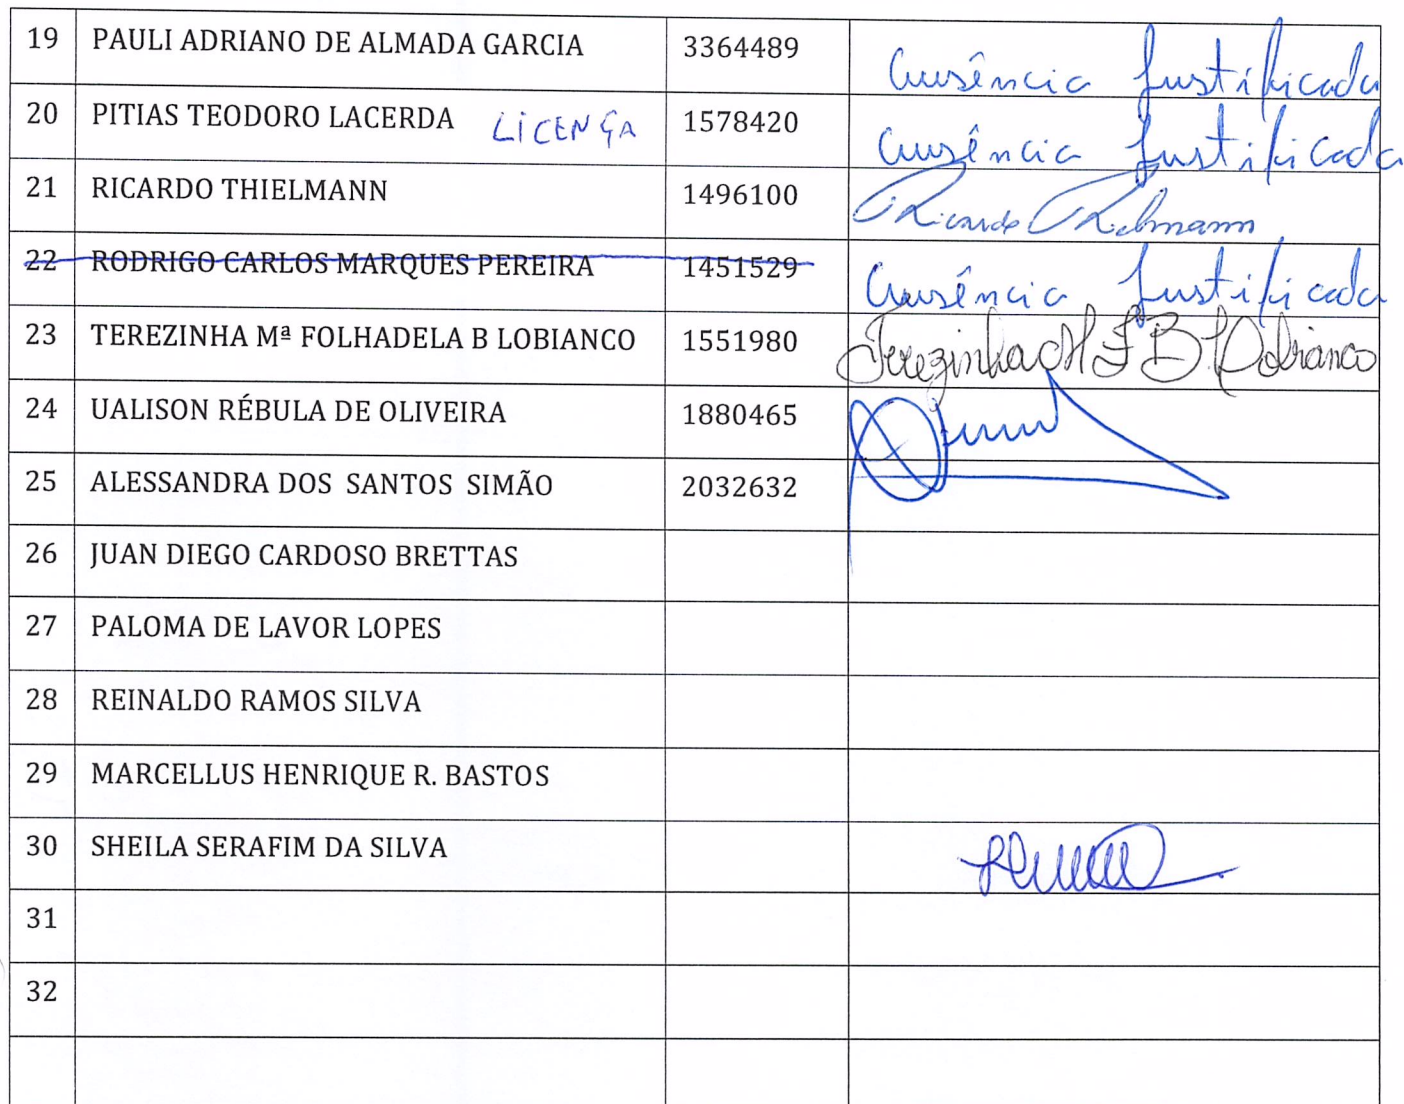 19 PAULI ADRIANO DE ALMADA GARCIA 3364489 Ausência Justificada
20 PITIAS TEODORO LACERDA LICENÇA 1578420 Ausência Justificada
21 RICARDO THIELMANN 1496100 Ricardo Thielmann
22 RODRIGO CARLOS MARQUES PEREIRA 1451529 Ausência Justificada
23 TEREZINHA Mª FOLHADELA B LOBIANCO 1551980 Terezinha M F B Lobianco
24 UALISON RÉBULA DE OLIVEIRA 1880465
25 ALESSANDRA DOS SANTOS SIMÃO 2032632
26 JUAN DIEGO CARDOSO BRETTAS
27 PALOMA DE LAVOR LOPES
28 REINALDO RAMOS SILVA
29 MARCELLUS HENRIQUE R. BASTOS
30 SHEILA SERAFIM DA SILVA
31
32